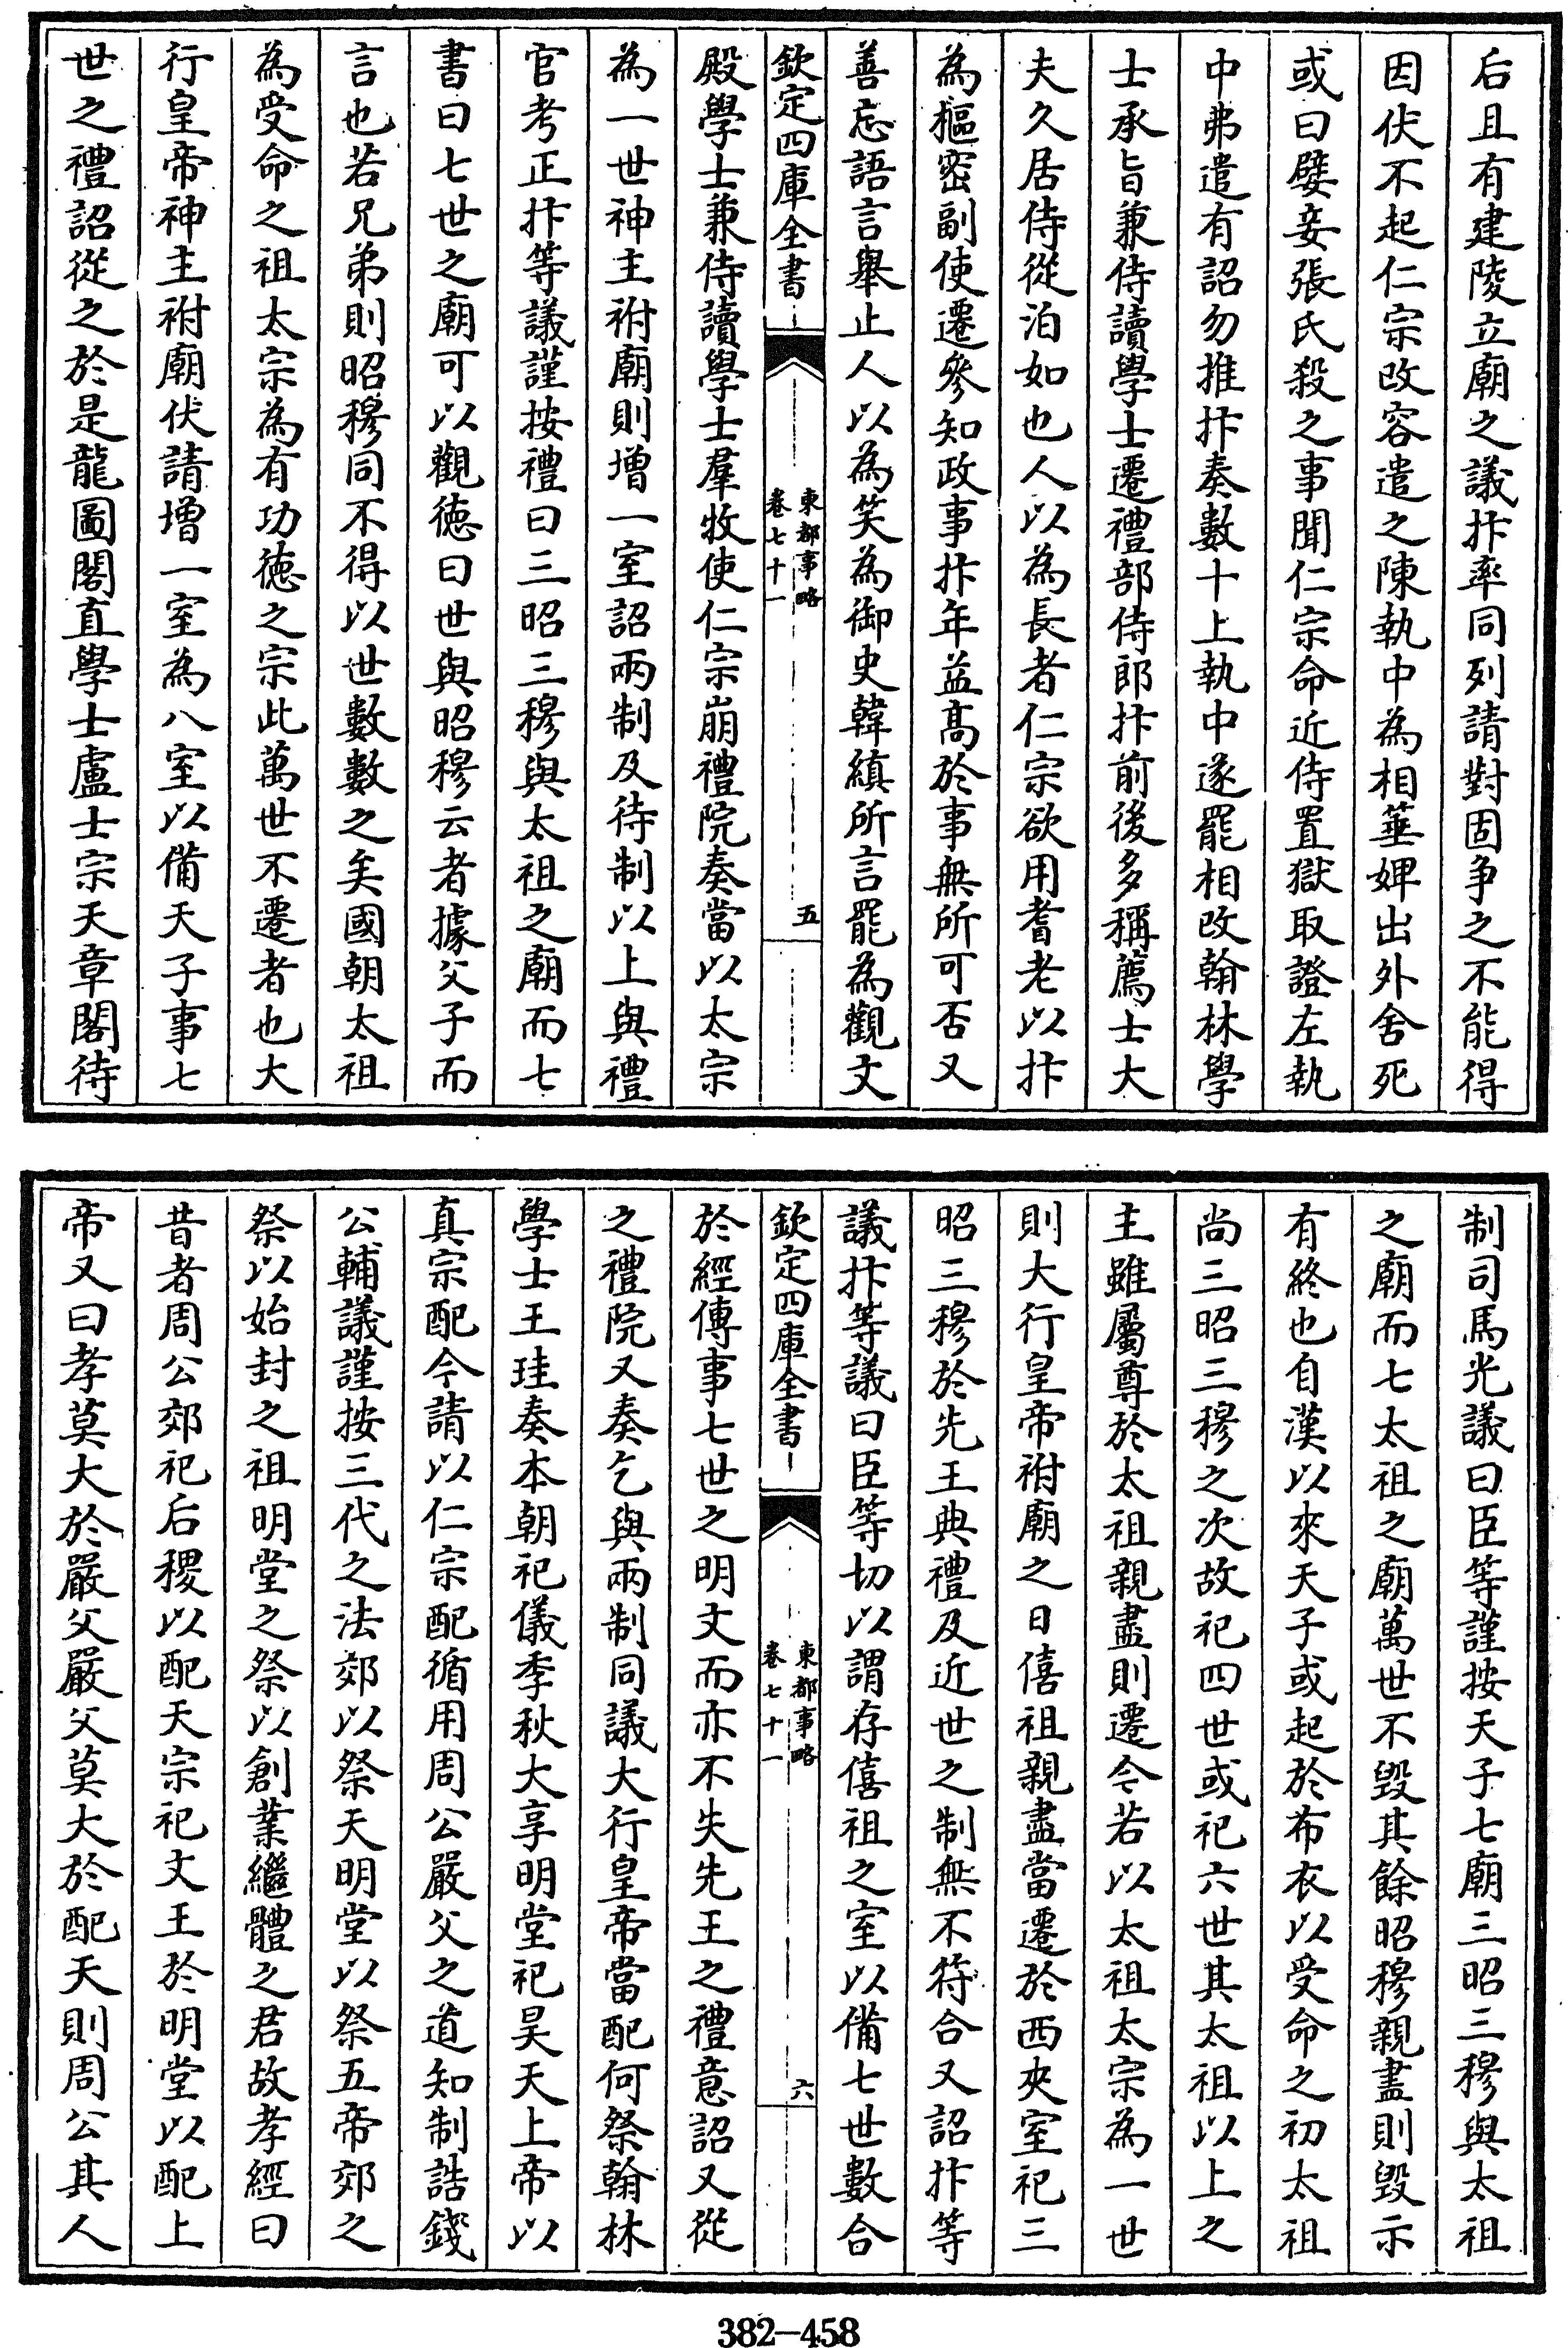 后且有建陵立廟之議抃率同列請對固争之不能得
因伏不起仁宗改容遣之陳執中為相箠婢出外舍死
或曰嬖妾張氏殺之事聞仁宗命近侍置獄取證左執
中弗遣有詔勿推抃奏數十上執中遂罷相改翰林學
士承旨兼侍讀學士遷禮部侍郎抃前後多稱薦士大
夫久居侍從泊如也人以為長者仁宗欲用耆老以抃
為樞密副使遷參知政事抃年益髙於事無所可否又
善忘語言舉止人以為笑為御史韓縝所言罷為觀文
欽定四庫全書
東都事略
卷七十一
五
殿學士兼侍讀學士羣牧使仁宗崩禮院奏當以太宗
為一世神主祔廟則增一室詔兩制及待制以上與禮
官考正抃等議謹按禮曰三昭三穆與太祖之廟而七
書曰七世之廟可以觀徳曰世與昭穆云者據父子而
言也若兄弟則昭穆同不得以世數數之矣國朝太祖
為受命之祖太宗為有功徳之宗此萬世不遷者也大
行皇帝神主祔廟伏請增一室為八室以備天子事七
世之禮詔從之於是龍圖閣直學士盧士宗天章閣待
制司馬光議曰臣等謹按天子七廟三昭三穆與太祖
之廟而七太祖之廟萬世不毁其餘昭穆親盡則毁示
有終也自漢以來天子或起於布衣以受命之初太祖
尚三昭三穆之次故祀四世或祀六世其太祖以上之
主雖屬尊於太祖親盡則遷今若以太祖太宗為一世
則大行皇帝祔廟之日僖祖親盡當遷於西夾室祀三
昭三穆於先王典禮及近世之制無不符合又詔抃等
議抃等議曰臣等切以謂存僖祖之室以備七世數合
欽定四庫全書
東都事略
卷七十一
六
於經傳事七世之明文而亦不失先王之禮意詔又從
之禮院又奏乞與兩制同議大行皇帝當配何祭翰林
學士王珪奏本朝祀儀季秋大享明堂祀昊天上帝以
真宗配今請以仁宗配循用周公嚴父之道知制誥錢
公輔議謹按三代之法郊以祭天明堂以祭五帝郊之
祭以始封之祖明堂之祭以創業繼體之君故孝經曰
昔者周公郊祀后稷以配天宗祀文王於明堂以配上
帝又曰孝莫大於嚴父嚴父莫大於配天則周公其人
382-458